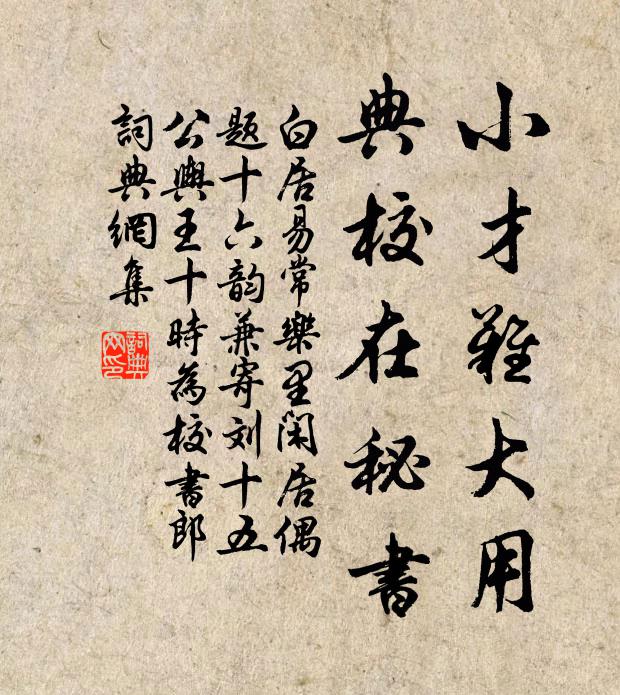 小才難大用
典校在秘書
白居易常樂里閑居偶
題十六韵兼寄刘十五
公輿王十時為校書郎
詞典網集
詞典網印